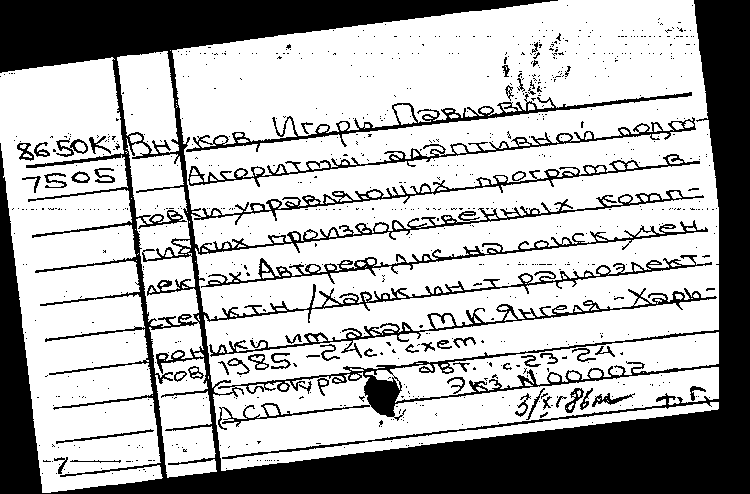 86.50К. Внуков, Игорь Павлович.
7505 Алгоритмы адаптивной подго-
товки управляющих программ в
гибких производственных комп-
лексах: Автореф. дис. на соиск. учен.
степ. к.т.н. / Харьк. ин-т радиоэлект-
роники им. акад. М.К. Янгеля. - Харь-
ков, 1985. - 24 с.: схем.
Список работ авт.: с. 23-24.
Экз. N 00002
ДСП.